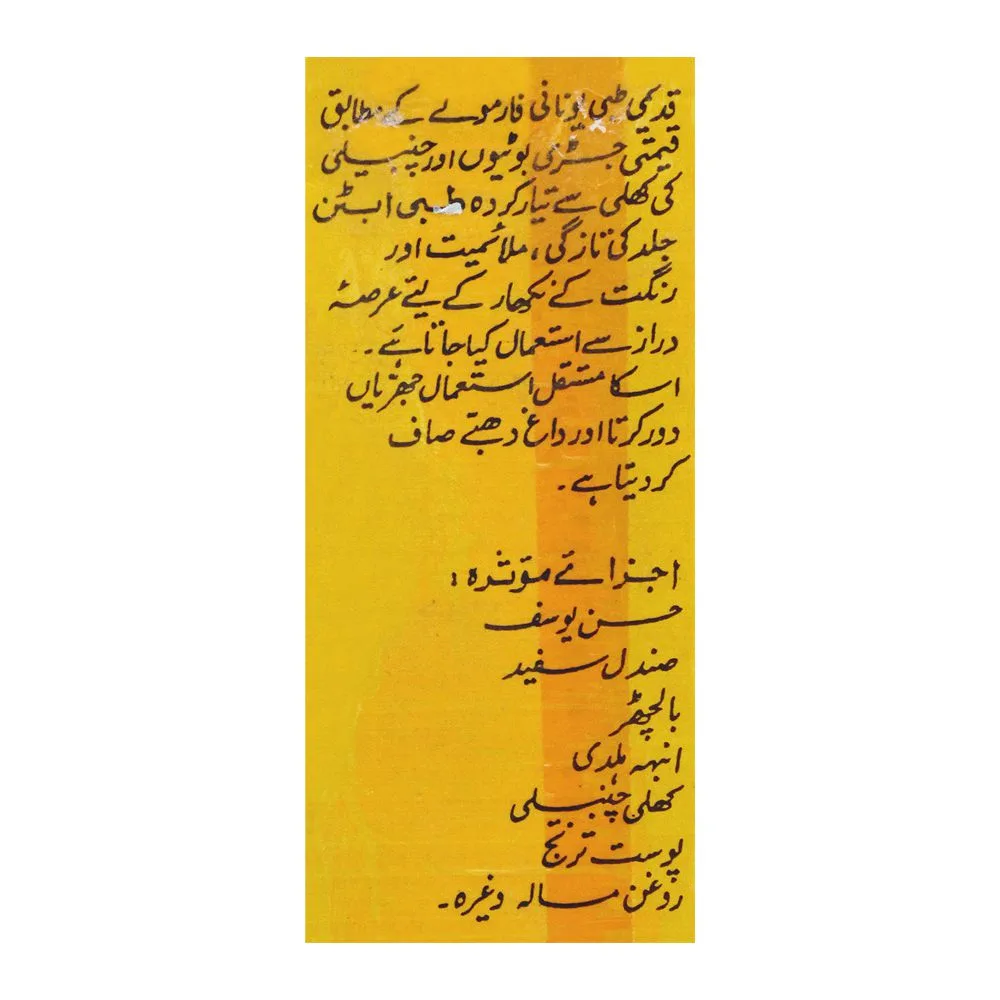 قدیمی طبی یونانی فارمولے کے مطابق
قیمتی جڑی بوٹیوں اور چنبیلی
کی کھلی سے تیار کردہ طبی ابٹن
جلد کی تازگی، ملائمیت اور
رنگت کے نکھار کے لیئے عرصۂ
دراز سے استعمال کیا جاتا ہے۔
اسکا مستقل استعمال جھریاں
دور کرتا اور داغ دھبے صاف
کر دیتا ہے۔
اجزائے موّثرہ:
حسن یوسف
صندل سفید
بالچھڑ
انبہ ہلدی
کھلی چنبیلی
پوست ترنج
روغن مسالہ وغیرہ۔